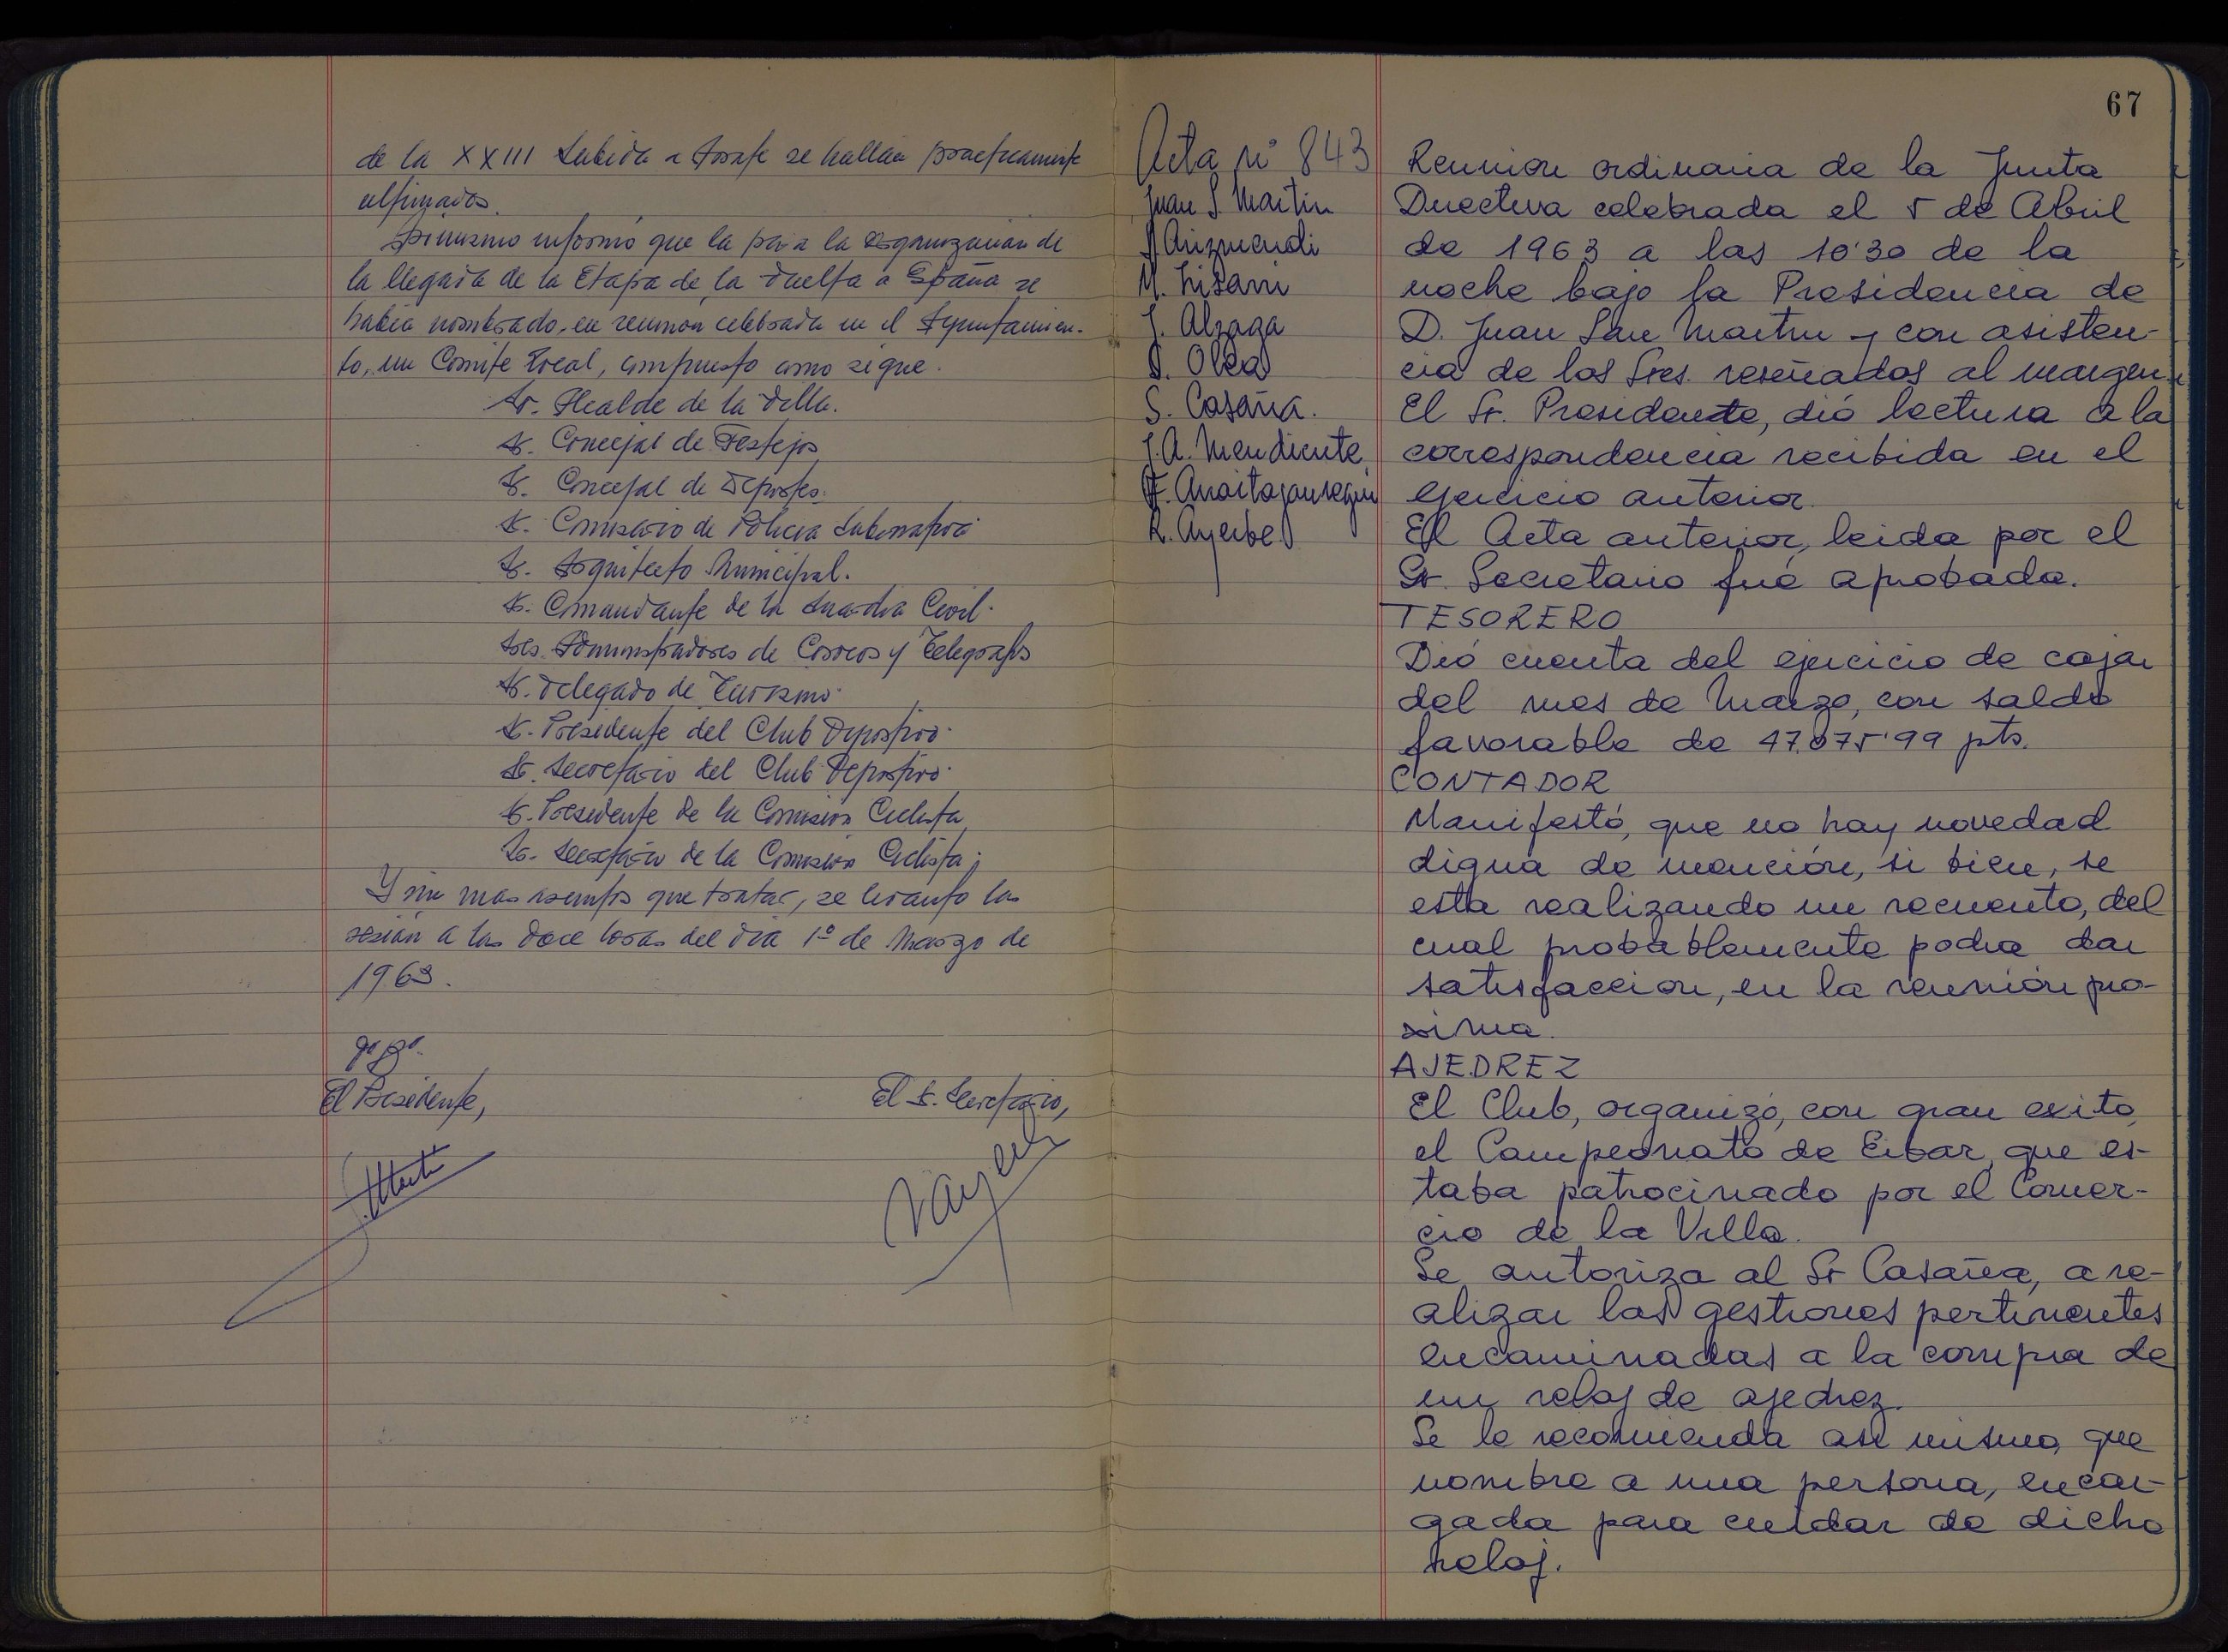 de la XXIII Subida a Arrate se hallan practicamente
ultimados.
Asimismo informó que la para la organización de
la llegada de la Etapa de la Vuelta a España se
había nombrado, en reunion celebrada en el Ayuntamien-
to, un Comite Local, compuesto como sigue.
Sr. Alcalde de la Villa.
Sr. Concejal de Festejos
Sr. Concejal de Deportes.
Sr. Comisario de Policia Gubernativa
Sr. Arquitecto Municipal.
Sr. Comandante de la Guardia Civil.
Sres. Administradores de Correos y Telegrafos
Sr. Delegado de Turismo.
Sr. Presidente del Club Deportivo.
Sr. Secretario del Club Deportivo.
Sr. Presidente de la Comisión Ciclista
Sr. Secretario de la Comision Ciclista.
Y sin mas asuntos que tratar, se levanto la
sesión a las doce horas del dia 1º de Marzo de
1963.
Vº Bº
El Presidente,
El Sr. Secretario,
67
Acta nº 843
Juan S. Martin
Arizmendi
M. Lisarri
J. Alzaga
D. Olea
S. Casaña.
J.A. Mendicute
F. Anaitajauregui
R. Ayerbe
Reunion ordinaria de la Junta
Directiva celebrada el 5 de Abril
de 1963 a las 10'30 de la
noche bajo la Presidencia de
D. Juan San Martin y con asisten-
cia de los Sres. reseñados al margen
El Sr. Presidente, dió lectura a la
correspondencia recibida en el
ejercicio anterior.
El Acta anterior, leida por el
Sr. Secretario fué aprobada.
TESORERO
Dió cuenta del ejercicio de caja
del mes de Marzo, con saldo
favorable de 47.075'99 pts.
CONTADOR
Manifestó, que no hay novedad
digna de mención, si bien, se
esta realizando un recuento, del
cual probablemente podra dar
satisfaccion, en la reunión pro-
xima.
AJEDREZ
El Club, organizó, con gran exito,
el Campeonato de Eibar, que es-
taba patrocinado por el Comer-
cio de la Villa.
Se autoriza al Sr Casaña, a re-
alizar las gestiones pertinentes
encaminadas a la compra de
un reloj de ajedrez.
Se le recomienda asi mismo, que
nombre a una persona, encar-
gada para cuidar de dicho
reloj.